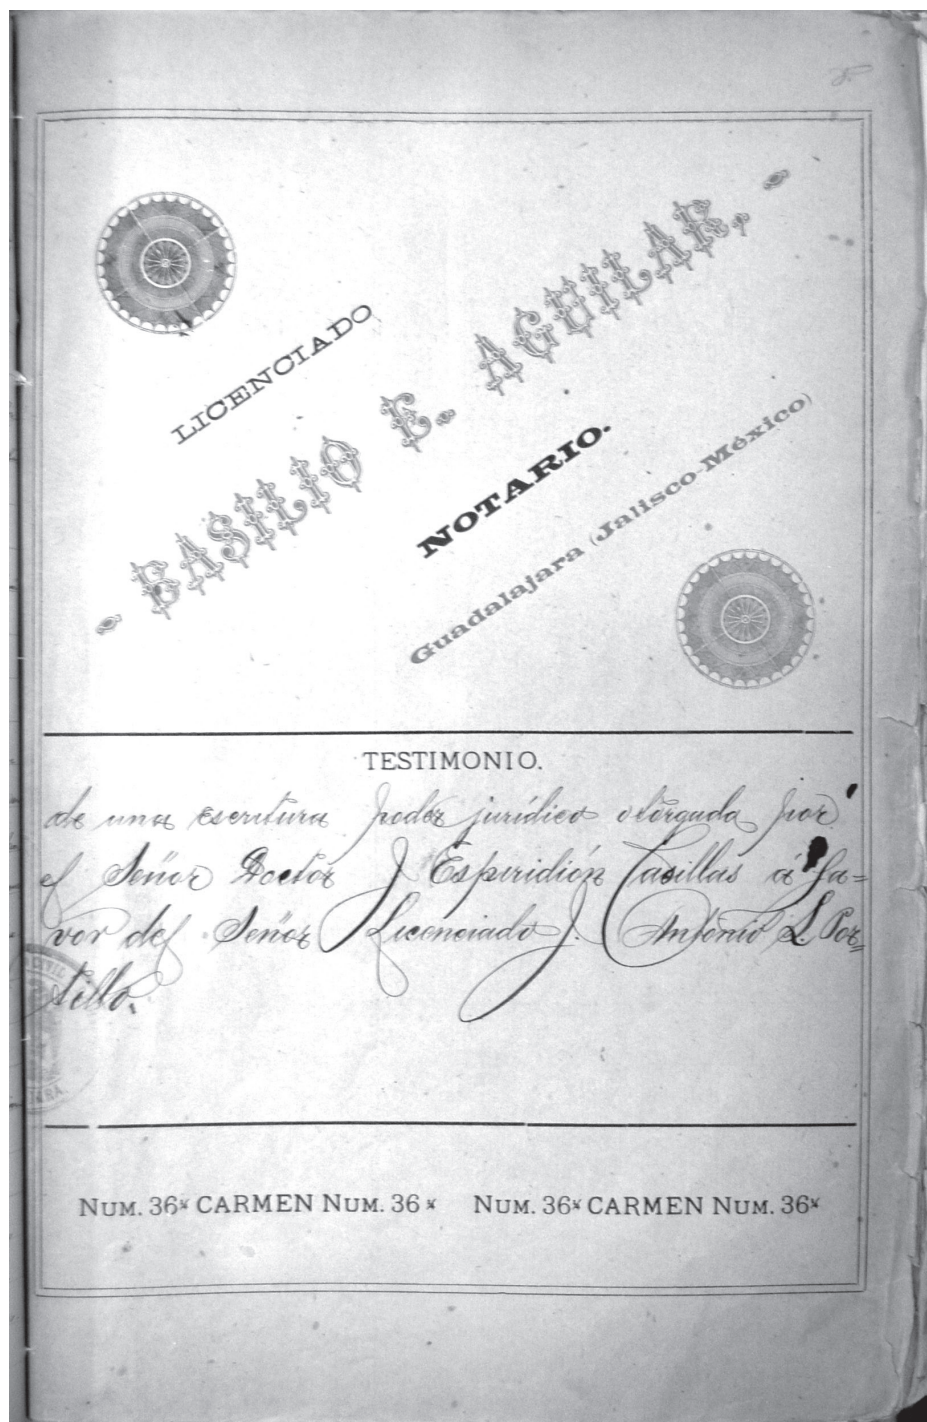 LICENCIADO
- BASILIO E. AGUILAR, -
NOTARIO.
Guadalajara (Jalisco-México)
TESTIMONIO.
de una escritura poder jurídico otorgada por
el Señor Doctor J Espiridión Casillas á fa=
vor del Señor Licenciado J. Antonio L. Por=
tillo.
NUM. 36½ CARMEN NUM. 36½ NUM. 36½ CARMEN NUM. 36½